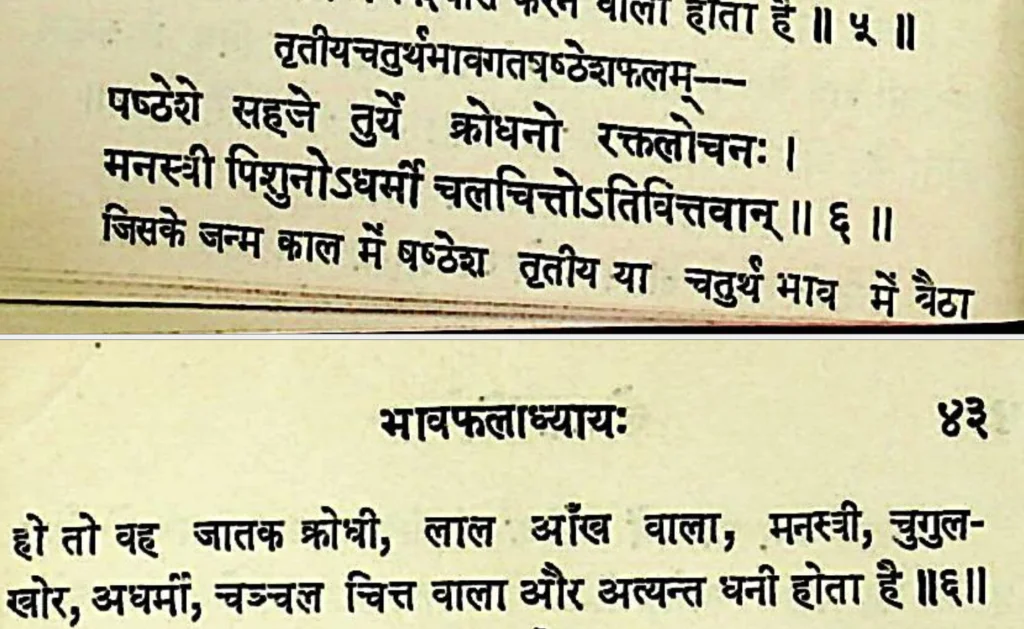 करने वाला होता है ॥ ५ ॥
तृतीयचतुर्थभावगतषष्ठेशफलम्--
षष्ठेशे सहजे तुर्ये क्रोधनो रक्तलोचनः ।
मनस्वी पिशुनोऽधर्मी चलचित्तोऽतिवित्तवान् ॥ ६ ॥
जिसके जन्म काल में षष्ठेश तृतीय या चतुर्थ भाव में बैठा
भावफलाध्यायः ४३
हो तो वह जातक क्रोधी, लाल आँख वाला, मनस्वी, चुगुल-
खोर, अधर्मी, चञ्चल चित्त वाला और अत्यन्त धनी होता है ॥६॥